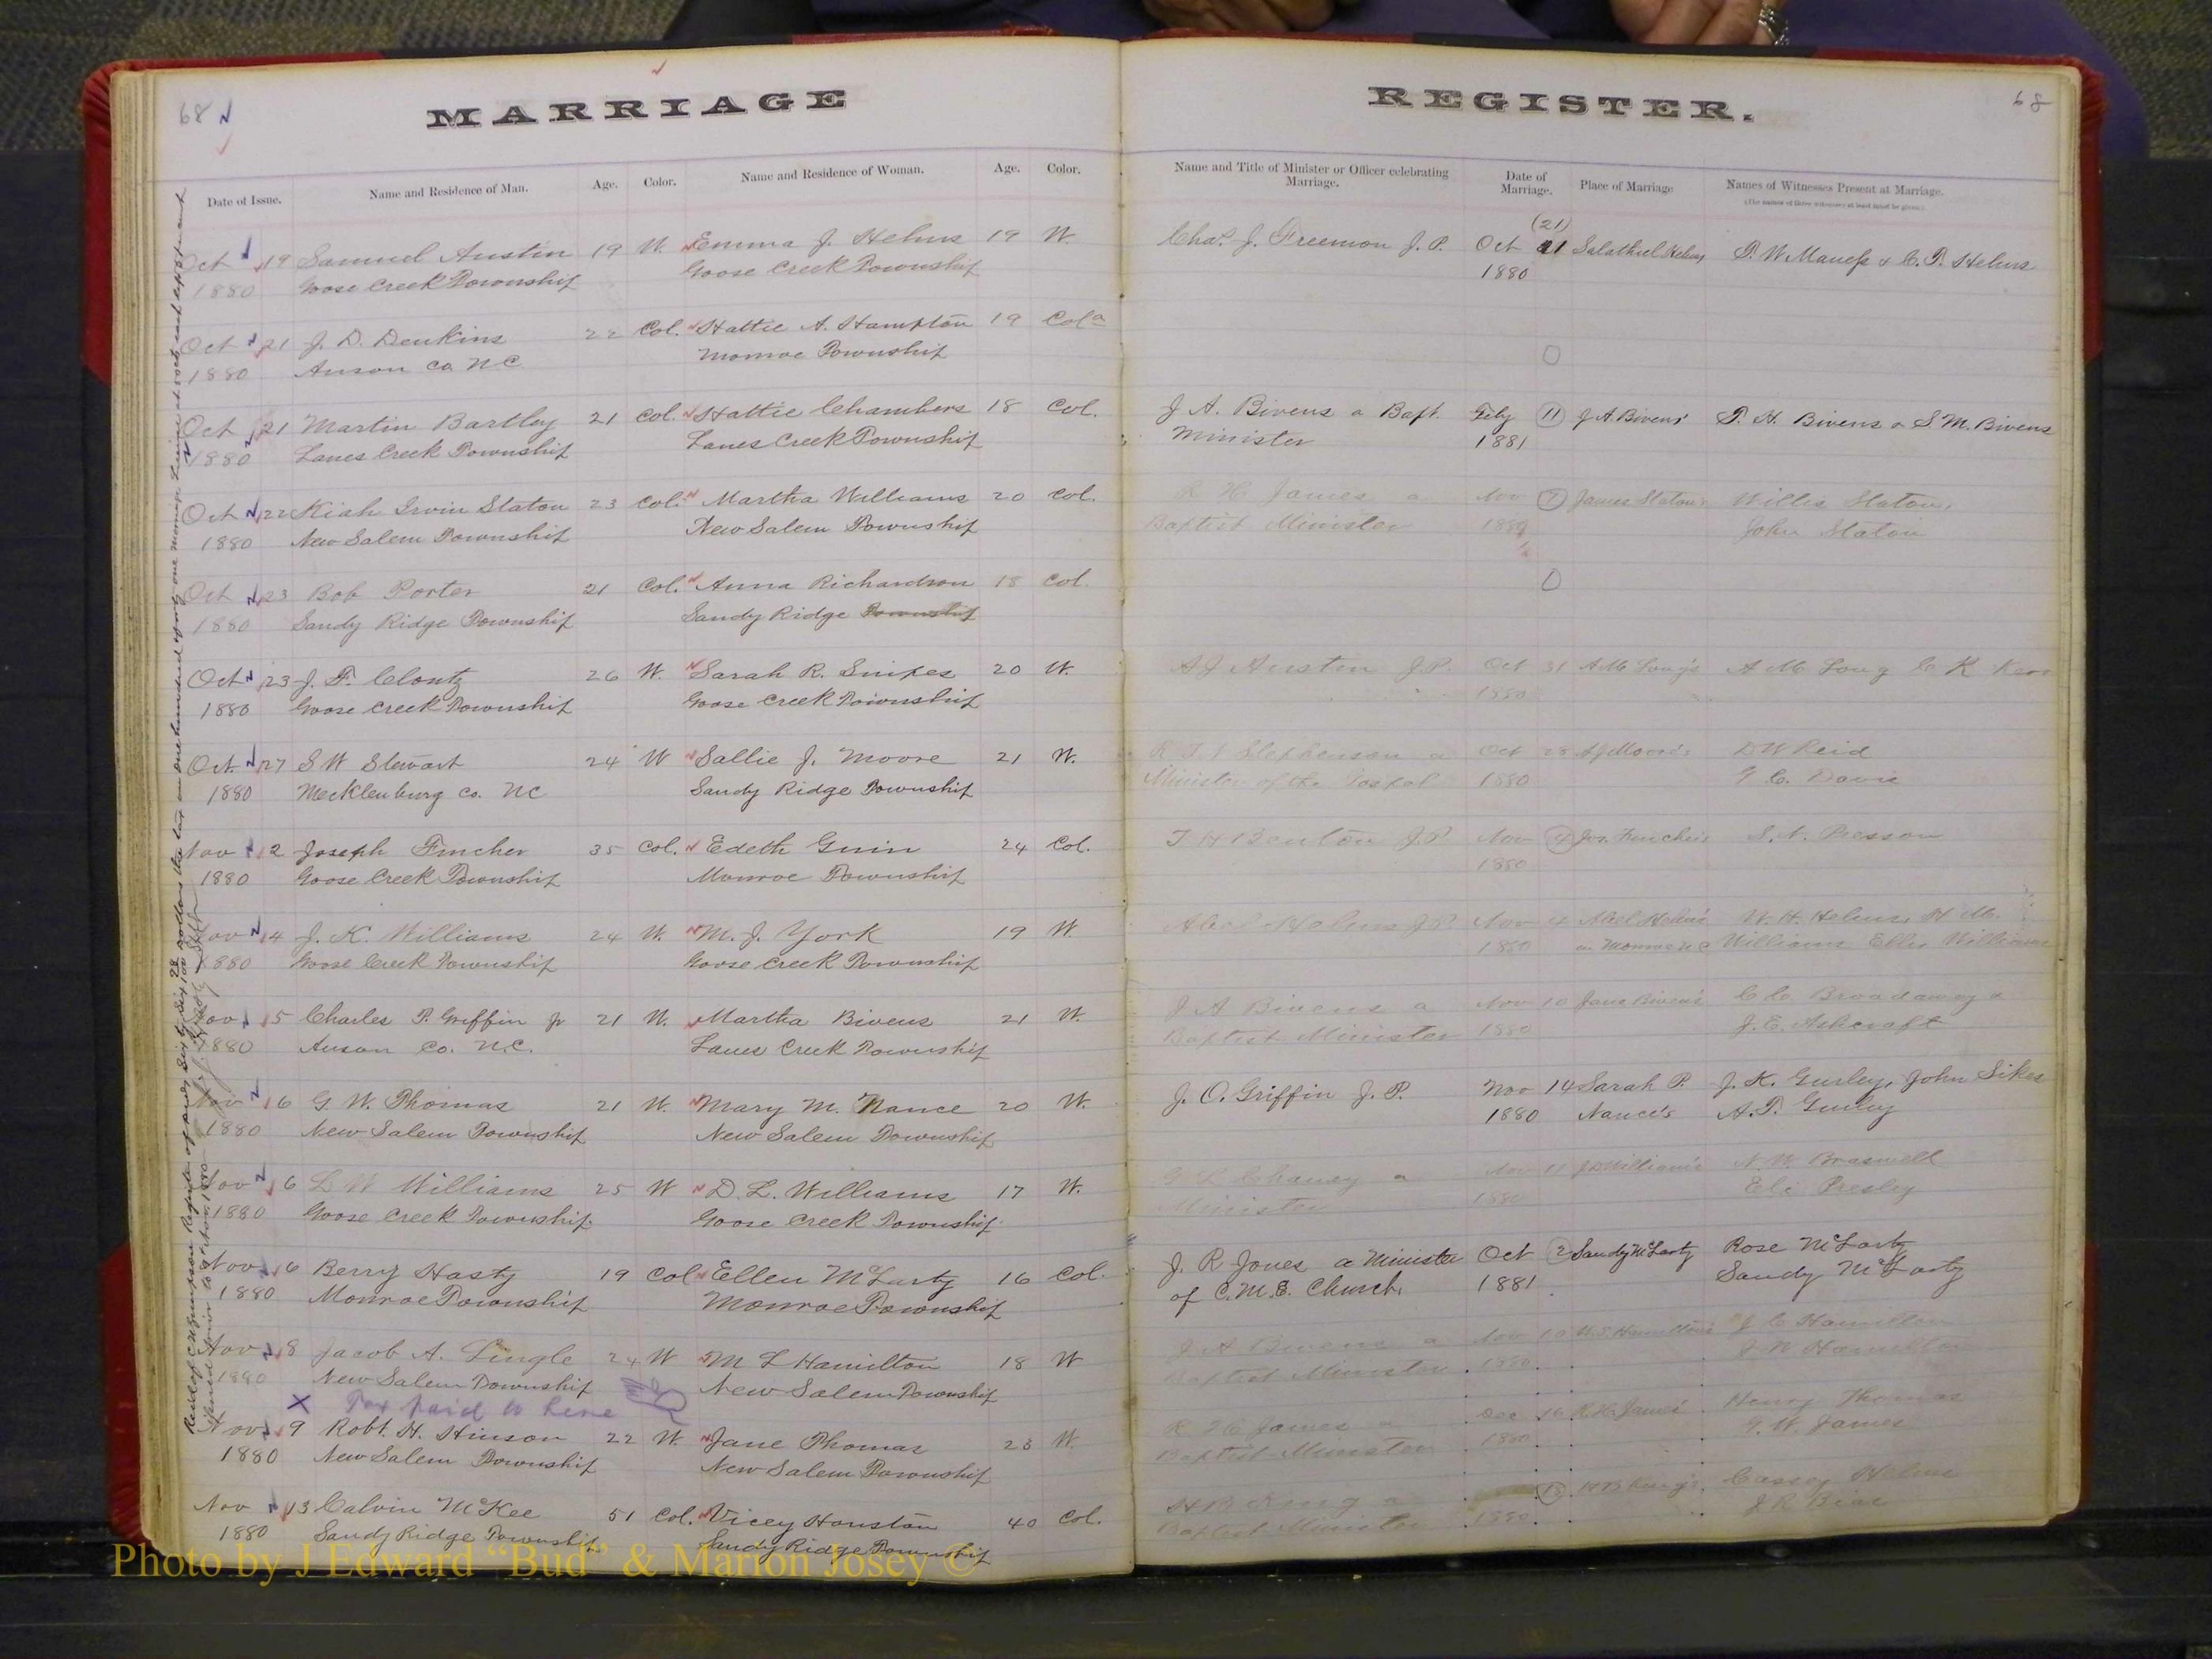 68
MARRIAGE REGISTER.
68
Date of Issue. Name and Residence of Man. Age. Color. Name and Residence of Woman. Age. Color. Name and Title of Minister or Officer celebrating Marriage. Date of Marriage. Place of Marriage Names of Witnesses Present at Marriage.
(The names of three witnesses at least must be given.)
(21)
Oct 19 Samuel Austin 19 W. Emma J. Helms 19 W. Chas. J. Freemon J. P. Oct 21 Salathiel Helms P. W. Maness & C. P. Helms
1880 Goose Creek Township Goose Creek Township 1880
Oct 21 J. D. Denkins 22 Col. Hattie A. Hampton 19 Col
1880 Anson Co N.C. Monroe Township
Oct 21 Martin Bartley 21 Col. Hattie Chambers 18 Col. J A. Bivens a Bapt. Feby 11 J A Bivens' T. H. Bivens & S. M. Bivens
1880 Lanes Creek Township Lanes Creek Township Minister 1881
Oct 22 Kiah Irvin Staton 23 Col. Martha Williams 20 Col. R H James a Nov 7 James Staton's Willis Staton,
1880 New Salem Township New Salem Township Baptist Minister 1880 John Staton
Oct 23 Bob Porter 21 Col. Anna Richardson 18 Col.
1880 Sandy Ridge Township Sandy Ridge Township
Oct 23 J. F. Clontz 26 W. Sarah R. Snipes 20 W. A J Austin J.P. Oct 31 A M Long's A M Long C K
1880 Goose Creek Township Goose Creek Township 1880
Oct. 27 S W Stewart 24 W Sallie J. Moore 21 W. Stephenson a Oct 28 Moore's D W Reid
1880 Mecklenburg Co. NC Sandy Ridge Township Minister of the Gospel 1880 Davis
Nov 2 Joseph Fincher 35 Col. Edeth Guin 24 Col. T H Benton J.P. Nov 4 Jos. Fincher's S. N. Presson
1880 Goose Creek Township Monroe Township 1880
Nov 4 J. K. Williams 24 W. M. J. York 19 W. Abel Helms J.P. Nov 4 Abel Helms's W. H. Helms, H M.
1880 Goose Creek Township Goose Creek Township 1880 Monroe N C Williams Ellis Williams
Nov 5 Charles P. Griffin Jr 21 W. Martha Bivens 21 W. J A Bivens a Nov 10 Jane Bivens's C C. Broadaway &
1880 Anson Co. N.C. Lanes Creek Township Baptist Minister 1880 J. E. Ashcraft
Nov 6 G. W. Thomas 21 W. Mary M. Nance 20 W. J. O. Griffin J. P. Nov 14 Sarah P. J. K. Gurley, John Sikes
1880 New Salem Township New Salem Township 1880 Nance's A. T. Gurley
Nov 6 L W Williams 25 W D. L. Williams 17 W. G L Chaney a Nov 11 Williams's N. W. Braswell
1880 Goose Creek Township Goose Creek Township Minister 1880 Eli Presley
Nov 6 Berry Hasty 19 Col Ellen McLarty 16 Col. J. R Jones a Minister Oct 2 Sandy McLarty Rose McLarty
1880 Monroe Township Monroe Township of C. M. E. Church. 1881 Sandy McLarty
Nov 8 Jacob A. Lingle 24 W M L Hamilton 18 W J A Bivens a Nov 10 Hamilton's J C Hamilton
1880 New Salem Township New Salem Township Baptist Minister 1880. J W Hamilton
X Tax paid to here
Nov 9 Robt. H. Hinson 22 W. Jane Thomas 23 W. R H James a Dec 16 R H James' Henry Thomas
1880 New Salem Township New Salem Township Baptist Minister 1880. James
Nov 13 Calvin McKee 51 Col. Vicey Houston 40 Col. H B King a H B King's Cassey Helms
1880 Sandy Ridge Township Sandy Ridge Township Baptist Minister 1880.
Photo by J Edward “Bud” & Marion Josey ©